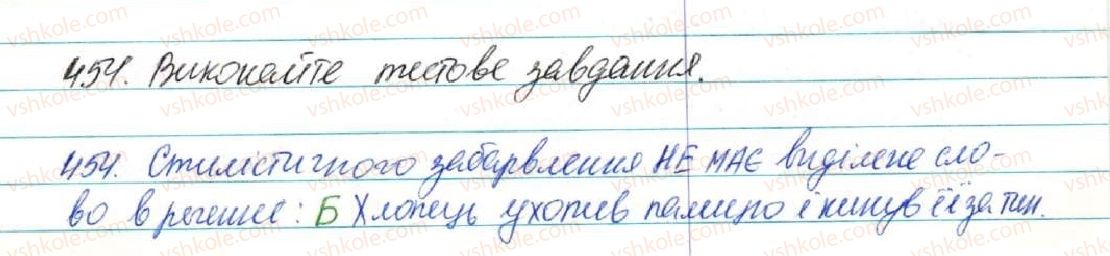 454. Виконайте тестове завдання.
454. Стилістичного забарвлення НЕ МАЄ виділене сло-
во в реченні: Б Хлопець ухопив палицю і кинув її за тин.